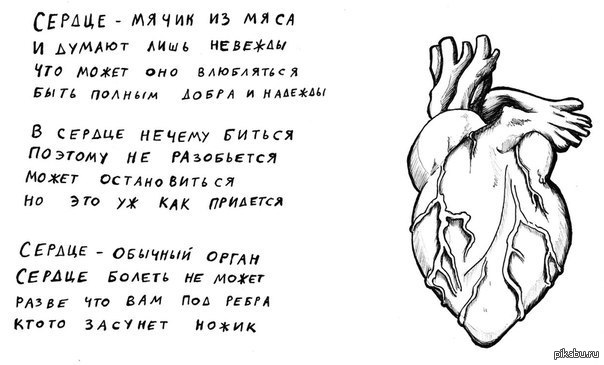 СЕРДЦЕ - МЯЧИК ИЗ МЯСА
И ДУМАЮТ ЛИШЬ НЕВЕЖДЫ
ЧТО МОЖЕТ ОНО ВЛЮБЛЯТЬСЯ
БЫТЬ ПОЛНЫМ ДОБРА И НАДЕЖДЫ
В СЕРДЦЕ НЕЧЕМУ БИТЬСЯ
ПОЭТОМУ НЕ РАЗОБЬЕТСЯ
МОЖЕТ ОСТАНОВИТЬСЯ
НО ЭТО УЖ КАК ПРИДЕТСЯ
СЕРДЦЕ - ОБЫЧНЫЙ ОРГАН
СЕРДЦЕ БОЛЕТЬ НЕ МОЖЕТ
РАЗВЕ ЧТО ВАМ ПОД РЕБРА
КТОТО ЗАСУНЕТ НОЖИК
pikabu.ru